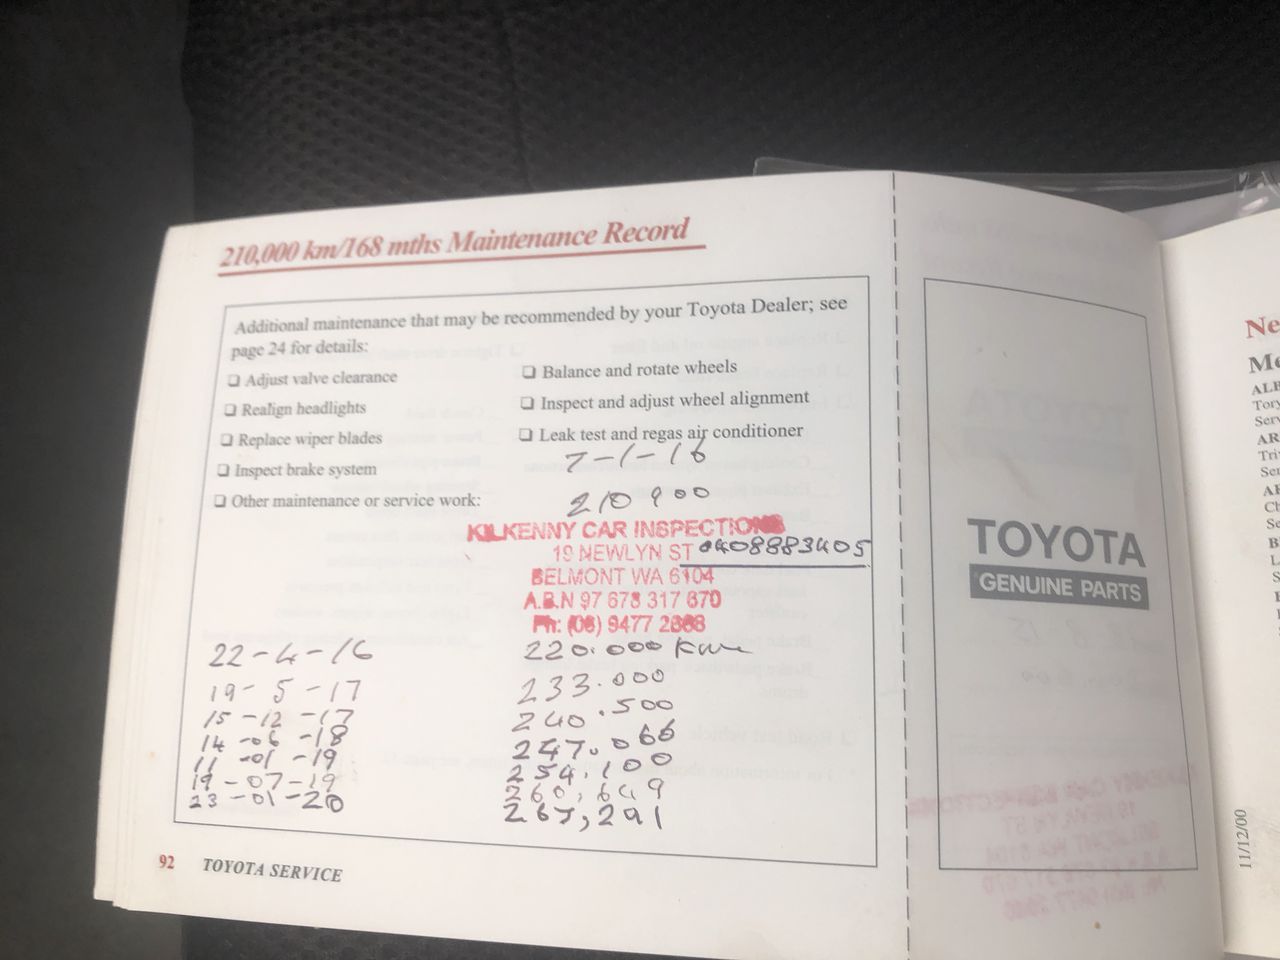 210,000 km/168 mths Maintenance Record
Additional maintenance that may be recommended by your Toyota Dealer; see
page 24 for details:
❏ Adjust valve clearance
❏ Realign headlights
❏ Replace wiper blades
❏ Inspect brake system
❏ Other maintenance or service work:
❏ Balance and rotate wheels
❏ Inspect and adjust wheel alignment
❏ Leak test and regas air conditioner
7-1-16
210900
KILKENNY CAR INSPECTIONS
19 NEWLYN ST 0408883405
BELMONT WA 6104
A.B.N 97 678 317 670
Ph: (08) 9477 2668
22-4-16 220.000 Km
19-5-17 233.000
15-12-17 240.500
14-06-18 247.066
11-01-19 254.100
19-07-19 260,649
23-01-20 267,291
92 TOYOTA SERVICE
TOYOTA
GENUINE PARTS
11/12/00